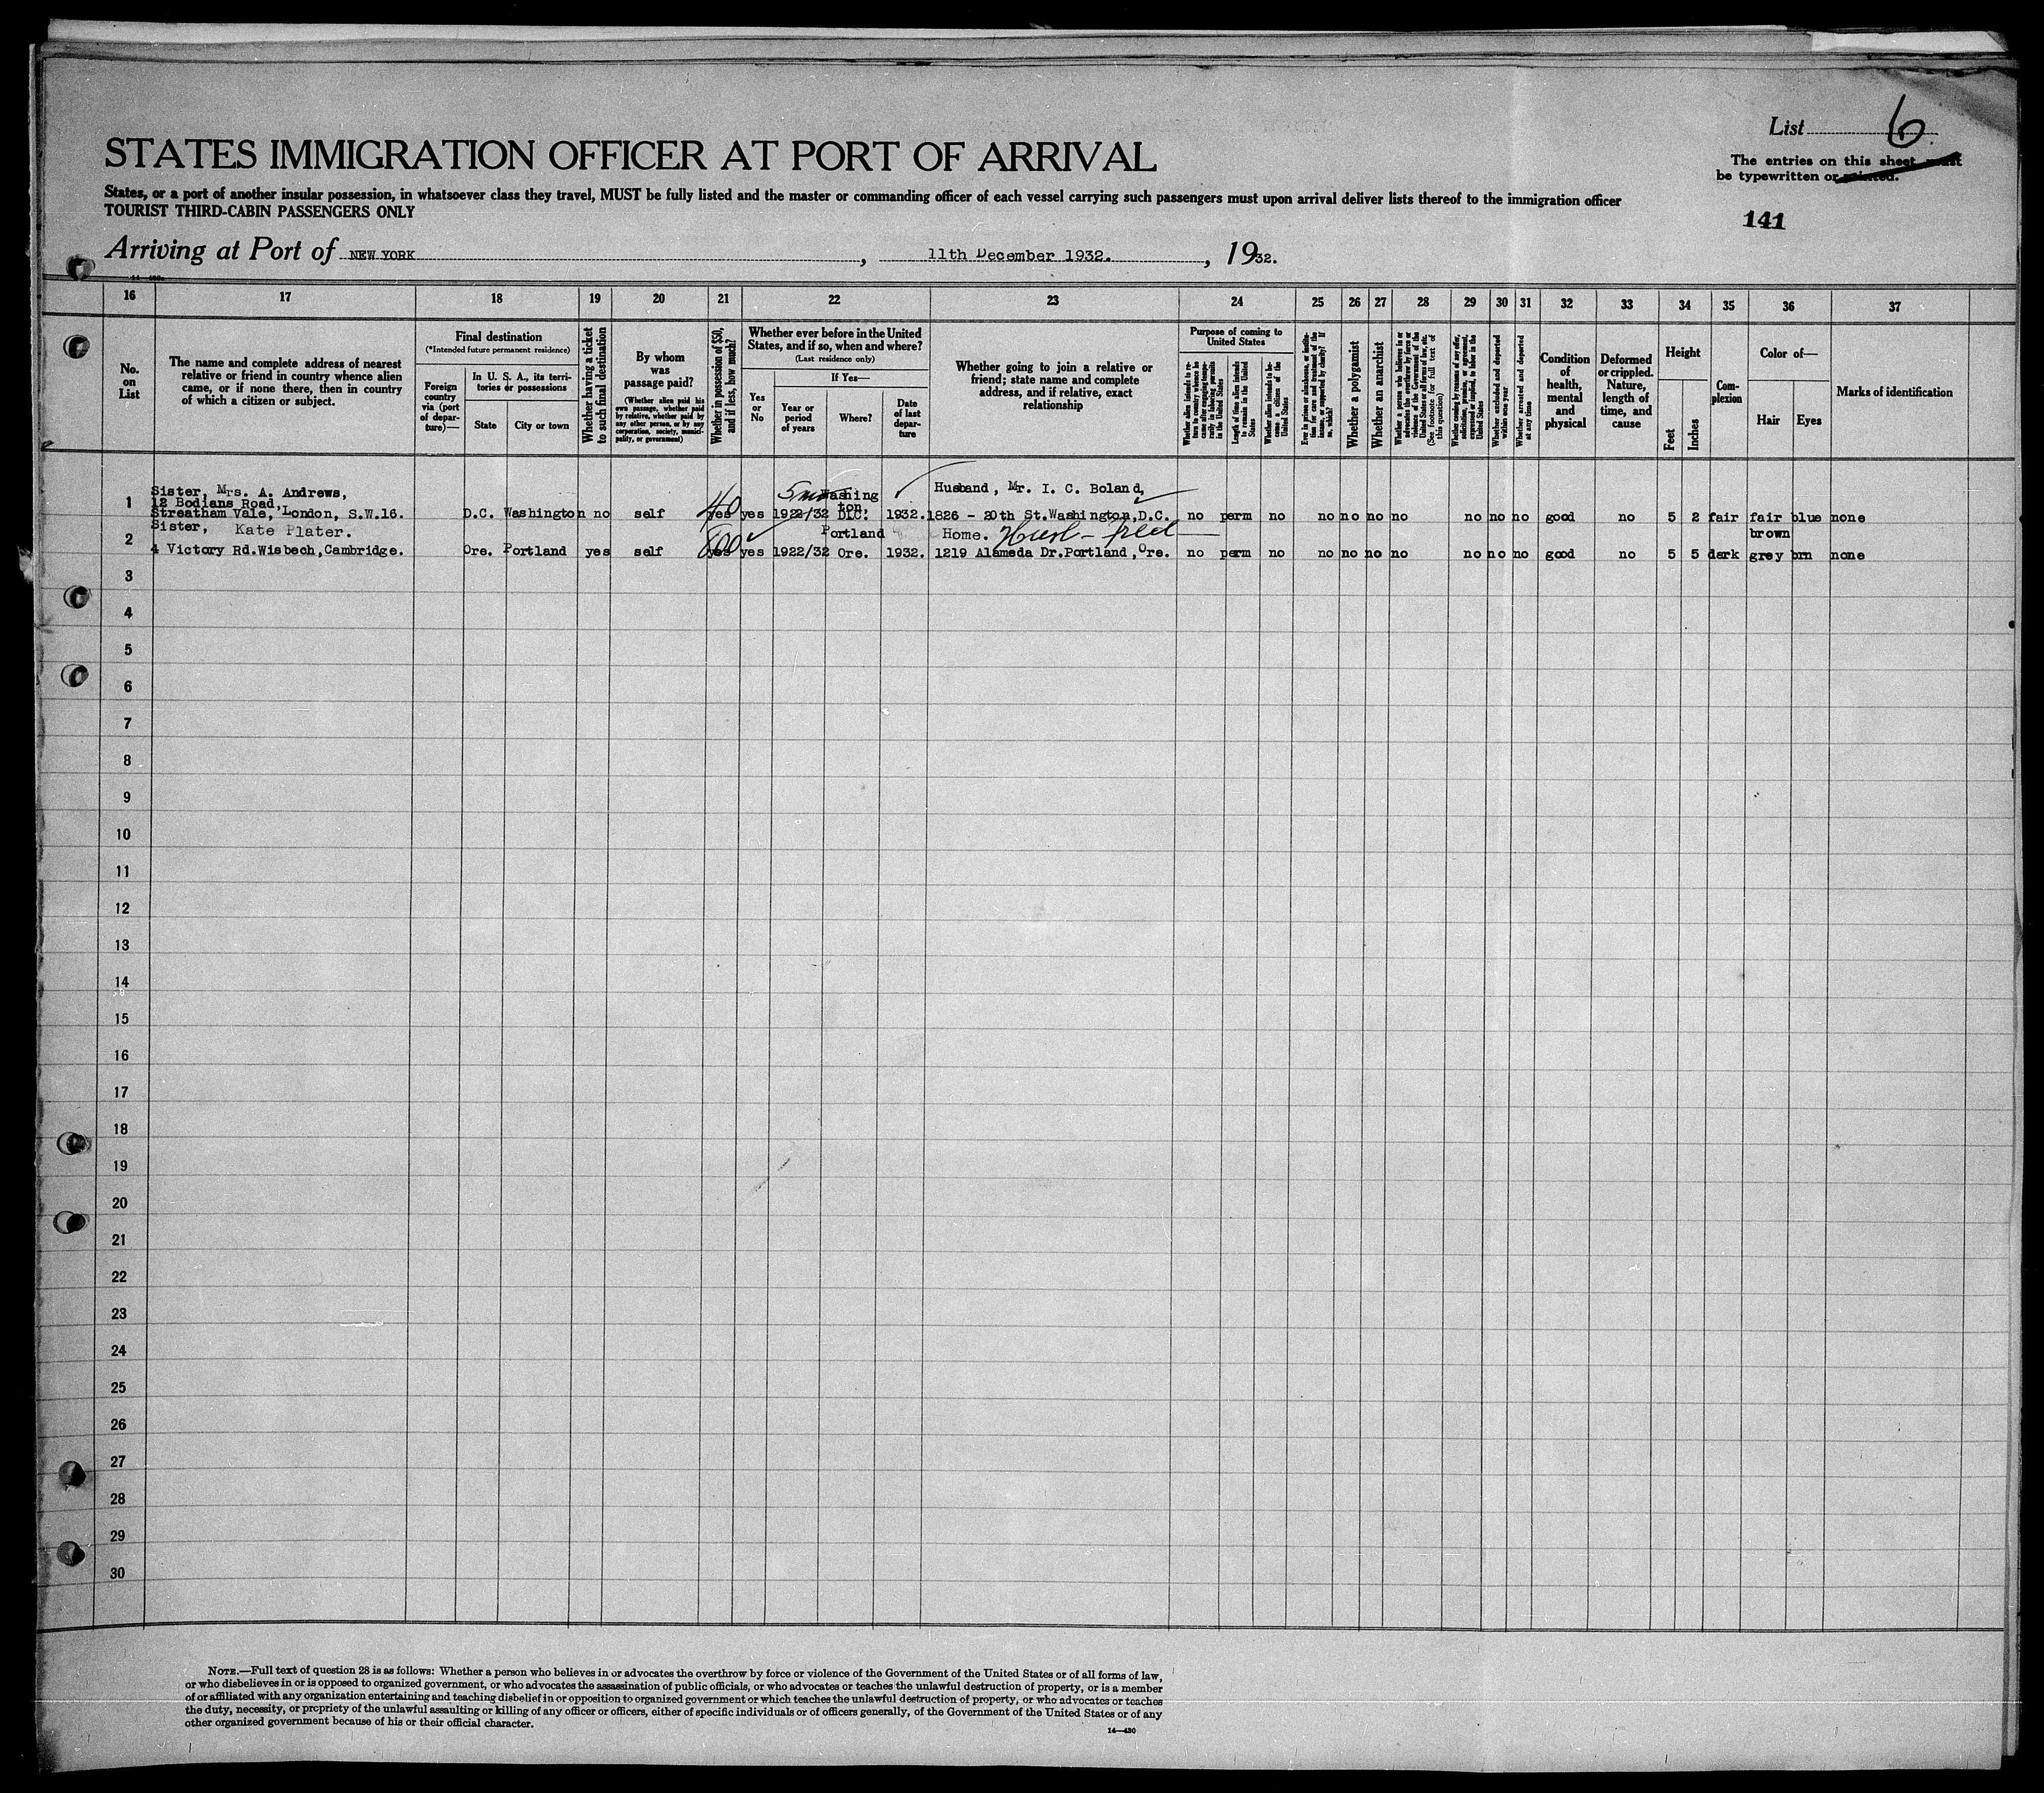 List 6
The entries on this sheet must
be typewritten or printed.
141
STATES IMMIGRATION OFFICER AT PORT OF ARRIVAL
States, or a port of another insular possession, in whatsoever class they travel, MUST be fully listed and the master or commanding officer of each vessel carrying such passengers must upon arrival deliver lists thereof to the immigration officer
TOURIST THIRD-CABIN PASSENGERS ONLY
Arriving at Port of NEW YORK, 11th December 1932., 1932.
16 17 18 19 20 21 22 23 24 25 26 27 28 29 30 31 32 33 34 35 36 37
No. on List
The name and complete address of nearest
relative or friend in country whence alien
came, or if none there, then in country
of which a citizen or subject.
Final destination
(*Intended future permanent residence)
Foreign
country
via (port
of depar-
ture)—
In U. S. A., its terri-
tories or possessions
State
City or town
Whether having a ticket
to such final destination
By whom
was
passage paid?
(Whether alien paid his
own passage, whether paid
by relative, whether paid by
any other person, or by any
corporation, society, munici-
pality, or government)
Whether in possession of $50,
and if less, how much?
Whether ever before in the United
States, and if so, when and where?
(Last residence only)
Yes
or
No
If Yes—
Year or
period
of years
Where?
Date
of last
depar-
ture
Whether going to join a relative or
friend; state name and complete
address, and if relative, exact
relationship
Purpose of coming to
United States
Whether alien intends to re-
turn to country whence he
came after engaging tempo-
rarily in laboring pursuits
in the United States
Length of time alien intends
to remain in the United
States
Whether alien intends to be-
come a citizen of the
United States
Ever in prison or almshouse, or institu-
tion for care and treatment of the
insane, or supported by charity? If
so, which?
Whether a polygamist
Whether an anarchist
Whether a person who believes in or
advocates the overthrow by force or
violence of the Government of the
United States or all forms of law, etc.
(See footnote for full text of
this question)
Whether coming by reason of any offer,
solicitation, promise, or agreement,
expressed or implied, to labor in the
United States
Whether excluded and deported
within one year
Whether arrested and deported
at any time
Condition
of
health,
mental
and
physical
Deformed
or crippled.
Nature,
length of
time, and
cause
Height
Feet
Inches
Com-
plexion
Color of—
Hair
Eyes
Marks of identification
Sister, Mrs. A. Andrews,
12 Bodians Road,
1 Streatham Vale, London, S.W.16. D.C. Washington no self yes 40 yes 1922/32 Washing ton D.C. 1932. Husband, Mr. I. C. Boland, 1826 - 20th St. Washington, D.C. no perm no no no no no no no no good no 5 2 fair fair blue none
Sister, Kate Plater.
2 4 Victory Rd. Wisbech, Cambridge. Ore. Portland yes self yes 800 yes 1922/32 Portland Ore. 1932. Home. Husb - Fred 1219 Alameda Dr. Portland, Ore. no perm no no no no no no no no good no 5 5 dark brown grey brn none
3
4
5
6
7
8
9
10
11
12
13
14
15
16
17
18
19
20
21
22
23
24
25
26
27
28
29
30
NOTE.—Full text of question 28 is as follows: Whether a person who believes in or advocates the overthrow by force or violence of the Government of the United States or of all forms of law,
or who disbelieves in or is opposed to organized government, or who advocates the assassination of public officials, or who advocates or teaches the unlawful destruction of property, or is a member
of or affiliated with any organization entertaining and teaching disbelief in or opposition to organized government or which teaches the unlawful destruction of property, or who advocates or teaches
the duty, necessity, or propriety of the unlawful assaulting or killing of any officer or officers, either of specific individuals or of officers generally, of the Government of the United States or of any
other organized government because of his or their official character.
14—480